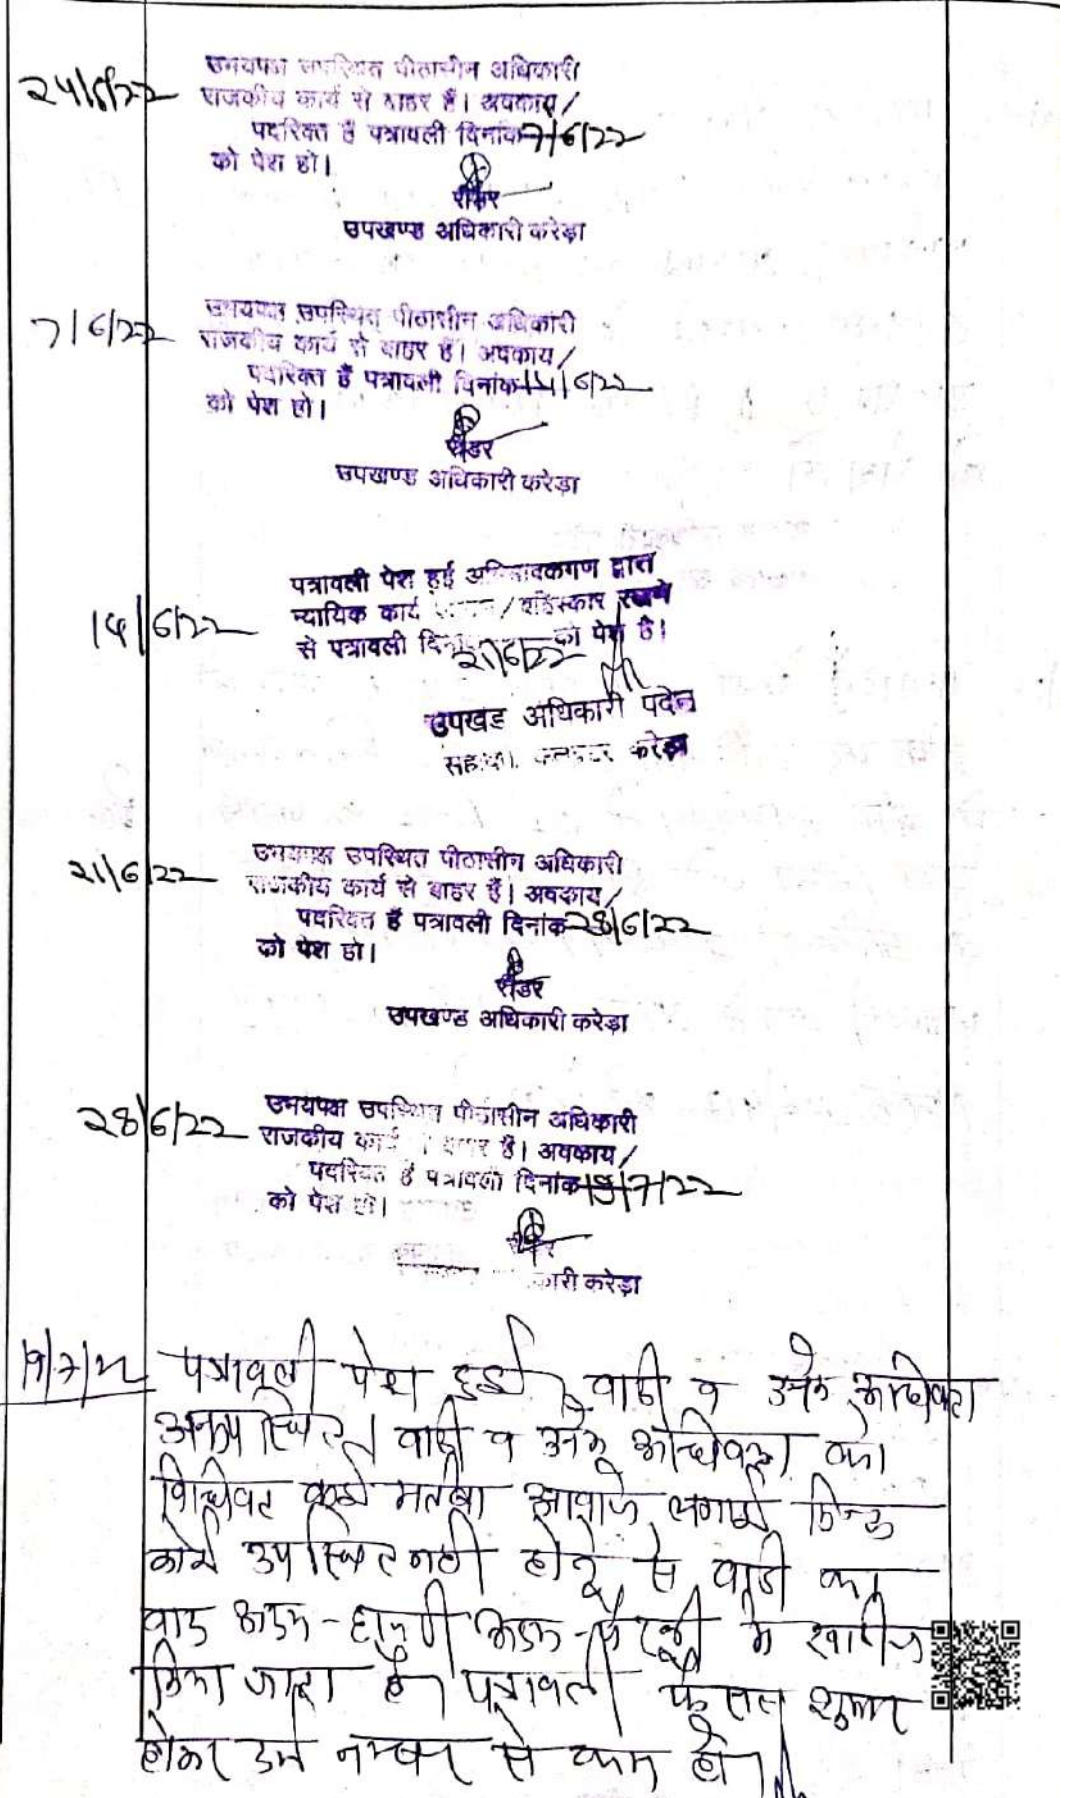 24/5/22
उभयपक्ष उपस्थित पीठासीन अधिकारी
राजकीय कार्य से बाहर हैं। अवकाय /
पदरिक्त हैं पत्रावली दिनांक 7/6/22
को पेश हो।
रीडर
उपखण्ड अधिकारी करेड़ा
7/6/22
उभयपक्ष उपस्थित पीठासीन अधिकारी
राजकीय कार्य से बाहर हैं। अवकाय /
पदरिक्त हैं पत्रावली दिनांक 14/6/22
को पेश हो।
रीडर
उपखण्ड अधिकारी करेड़ा
14/6/22
पत्रावली पेश हुई अभिभावकगण द्वारा
न्यायिक कार्य / बहिस्कार रखने
से पत्रावली दिनांक 21/6/22 को पेश हैं।
उपखंड अधिकारी पदेन
करेड़ा
21/6/22
उभयपक्ष उपस्थित पीठासीन अधिकारी
राजकीय कार्य से बाहर हैं। अवकाय /
पदरिक्त हैं पत्रावली दिनांक 28/6/22
को पेश हो।
रीडर
उपखण्ड अधिकारी करेड़ा
28/6/22
उभयपक्ष उपस्थित पीठासीन अधिकारी
राजकीय कार्य से बाहर हैं। अवकाय /
पदरिक्त हैं पत्रावली दिनांक 19/7/22
को पेश हो।
रीडर
करेड़ा
19/7/22 पत्रावली पेश हुई वादी व उनके अधिवक्ता
अनुपस्थित। वादी व उनके अधिवक्ता को
आवाजे लगाई किन्तु
कोई उपस्थित नही होने से वादी का
वाद अदम-हाजरी अदम-पैरवी मे खारीज
किया जाता है। पत्रावली फैसल शुमार
होकर दर्ज नम्बर से कम हो।